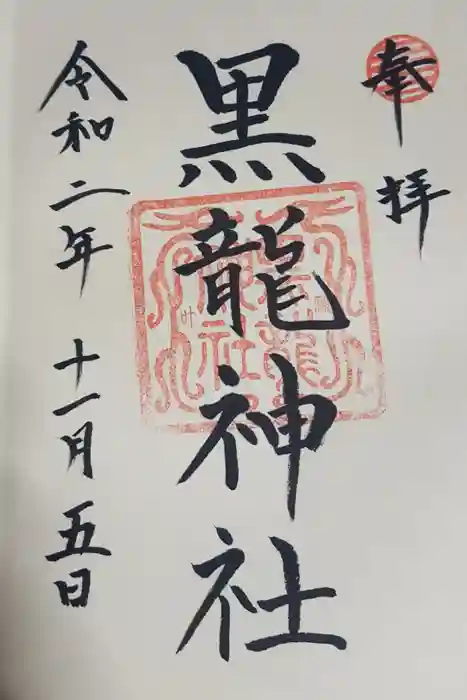 奉拝
黒龍神社
令和二年 十一月五日